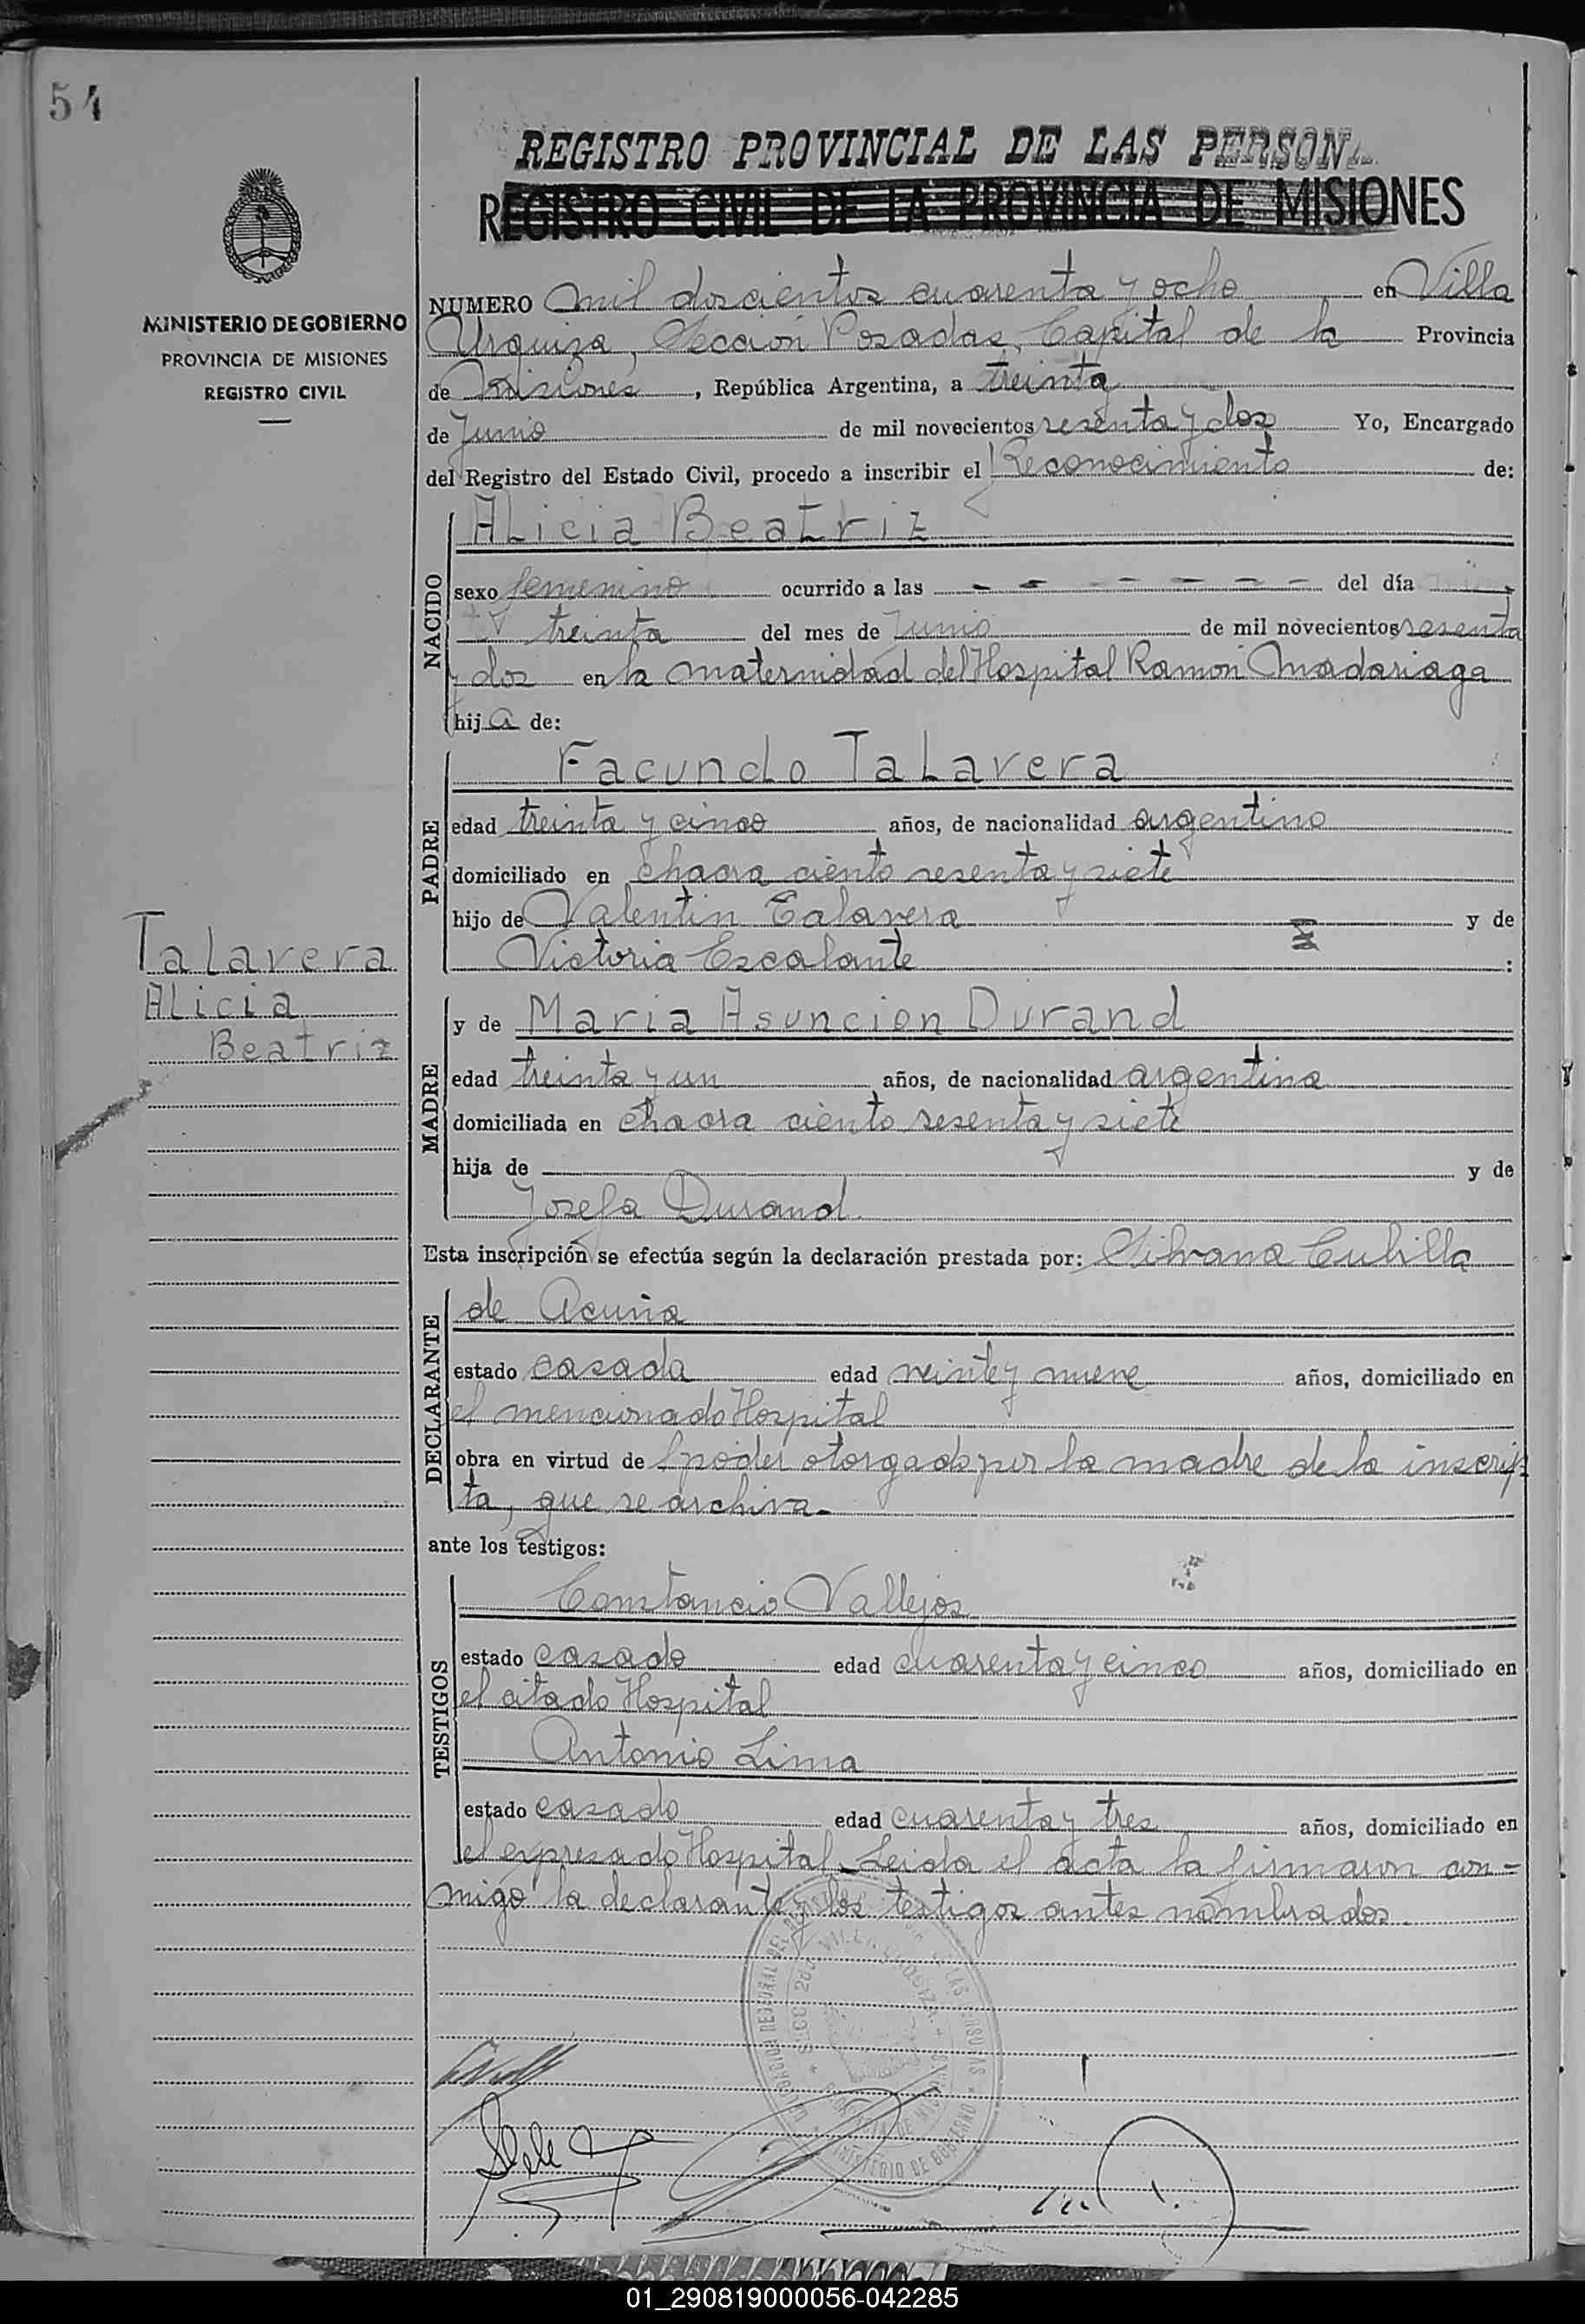 54
REGISTRO PROVINCIAL DE LAS PERSONA
REGISTRO CIVIL DE LA PROVINCIA DE MISIONES
MINISTERIO DE GOBIERNO
PROVINCIA DE MISIONES
REGISTRO CIVIL
NUMERO mil doscientos cuarenta y ocho en Villa
Urquiza, Sección Posadas, Capital de la Provincia
de Misiones, República Argentina, a treinta
de Junio de mil novecientos sesenta y dos Yo, Encargado
del Registro del Estado Civil, procedo a inscribir el Reconocimiento de:
NACIDO
Alicia Beatriz
sexo femenino ocurrido a las - - - - - - del día
treinta del mes de Junio de mil novecientos sesenta
y dos en la maternidad del Hospital Ramon Madariaga
hija de:
PADRE
Facundo Talavera
edad treinta y cinco años, de nacionalidad argentino
domiciliado en chacra ciento sesenta y siete
hijo de Valentin Talavera y de
Victoria Escalante :
Talavera
Alicia
Beatriz
MADRE
y de Maria Asuncion Durand
edad treinta y un años, de nacionalidad argentina
domiciliada en chacra ciento sesenta y siete
hija de y de
Josefa Durand.
Esta inscripción se efectúa según la declaración prestada por: Silvana Cubilla
DECLARANTE
de Acuña
estado casada edad veinte y nueve años, domiciliado en
el mencionado Hospital
obra en virtud de poder otorgado por la madre de la inscrip
ta, que se archiva.-
ante los testigos:
TESTIGOS
Constancio Vallejos
estado casado edad cuarenta y cinco años, domiciliado en
el citado Hospital
Antonio Lima
estado casado edad cuarenta y tres años, domiciliado en
el expresado Hospital. Leida el acta la firmaron con-
migo la declarante y los testigos antes nombrados.
01_290819000056-042285